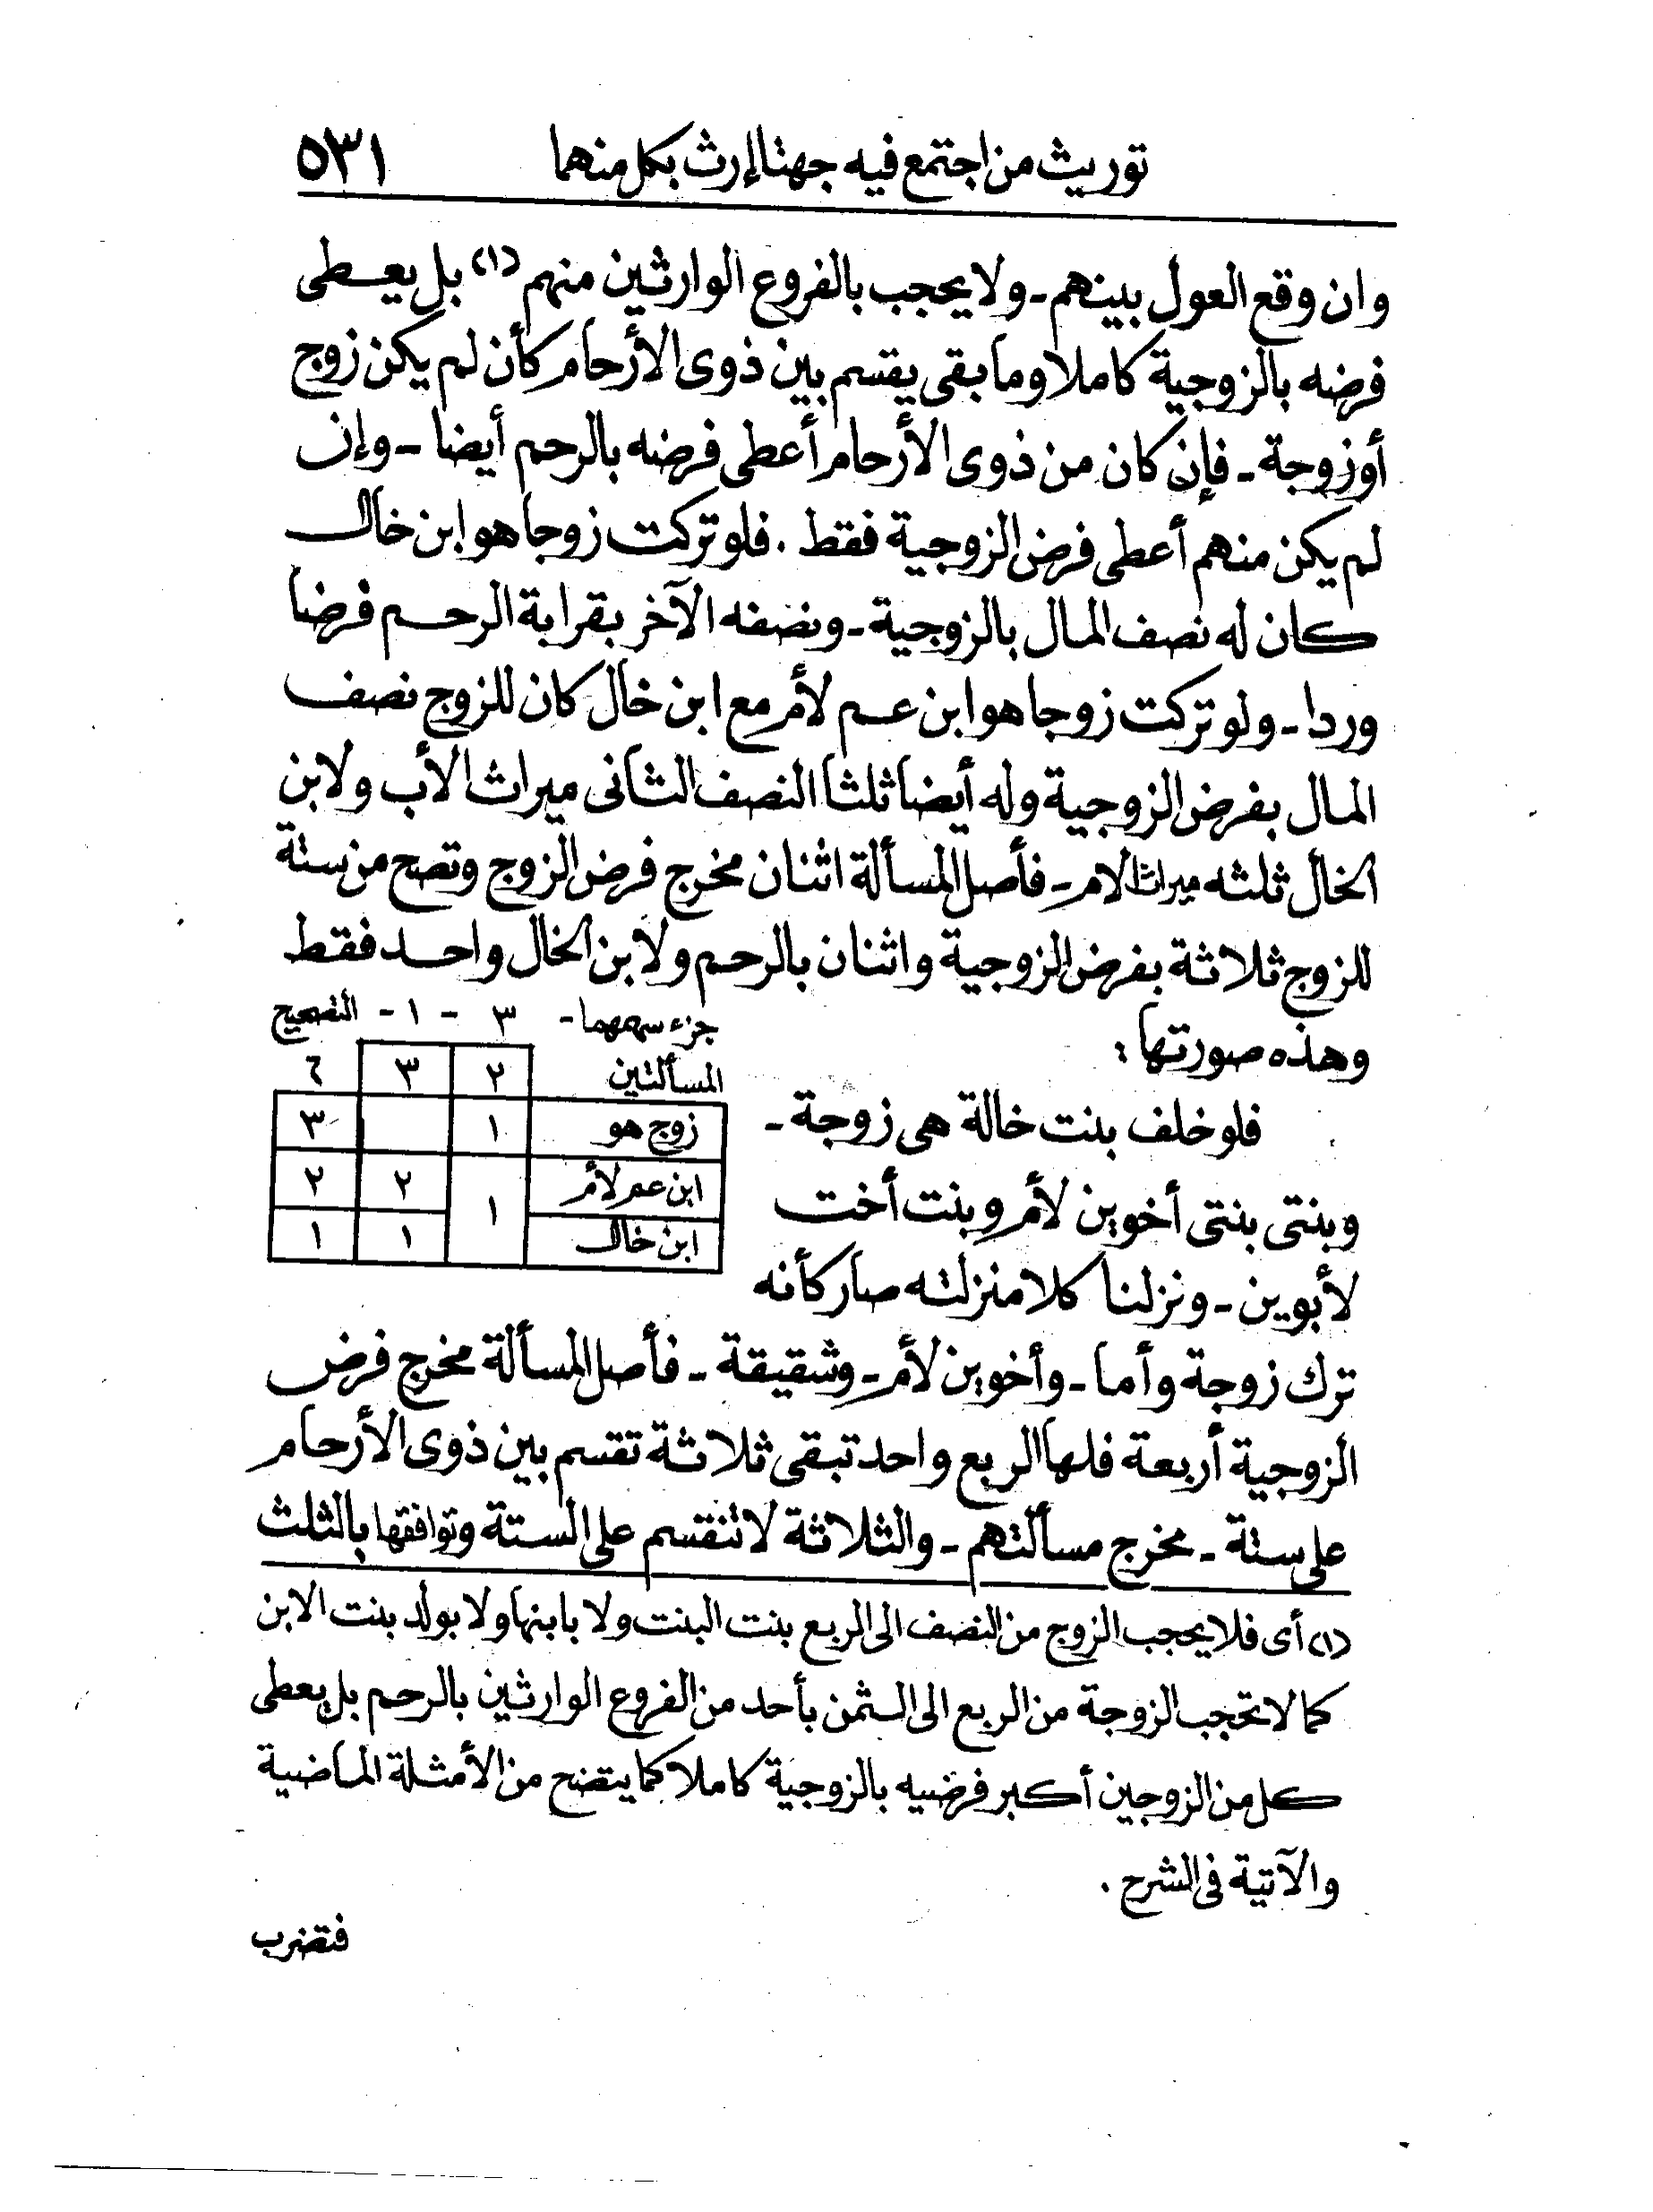 توريث من اجتمع فيه جهتا إرث بكل منهما ٥٣١
وان وقع العول بينهم - ولا يحجب بالفروع الوارثين منهم (١) بل يعطى
فرضه بالزوجية كاملا وما بقى يقسم بين ذوى الأرحام كأن لم يكن زوج
أو زوجة - فإن كان من ذوى الأرحام أعطى فرضه بالرحم أيضا - وإن
لم يكن منهم أعطى فرض الزوجية فقط . فلو تركت زوجا هو ابن خال
كان له نصف المال بالزوجية - ونصفه الآخر بقرابة الرحم فرضا
وردا - ولو تركت زوجا هو ابن عم لأم مع ابن خال كان للزوج نصف
المال بفرض الزوجية وله أيضا ثلثا النصف الثانى ميراث الأب ولابن
الخال ثلثه ميراث الام - فأصل المسألة اثنان مخرج فرض الزوج وتصح من ستة
للزوج ثلاثة بفرض الزوجية واثنان بالرحم ولابن الخال واحد فقط
وهذه صورتها :
جزء سهمهما - ٣ - ١ - التصحيح
المسألتين ٢ ٣ ٦
زوج هو ١ ٣
ابن عم لأم ١ ٢ ٢
ابن خال ١ ١
فلو خلف بنت خالة هى زوجة -
وبنتى بنتى أخوين لأم وبنت أخت
لأبوين - ونزلنا كلا منزلته صار كأنه
ترك زوجة وأما - وأخوين لأم - وشقيقة - فأصل المسألة مخرج فرض
الزوجية أربعة فلها الربع واحد تبقى ثلاثة تقسم بين ذوى الأرحام
على ستة - مخرج مسألتهم - والثلاثة لا تنقسم على الستة وتوافقها بالثلث
(١) أى فلا يحجب الزوج من النصف الى الربع بنت البنت ولا بابنها ولا بولد بنت الابن
كما لا تحجب الزوجة من الربع الى الثمن بأحد من الفروع الوارثين بالرحم بل يعطى
كل من الزوجين أكبر فرضيه بالزوجية كاملا كما يتضح من الأمثلة الماضية
والآتية فى الشرح .
فتضرب